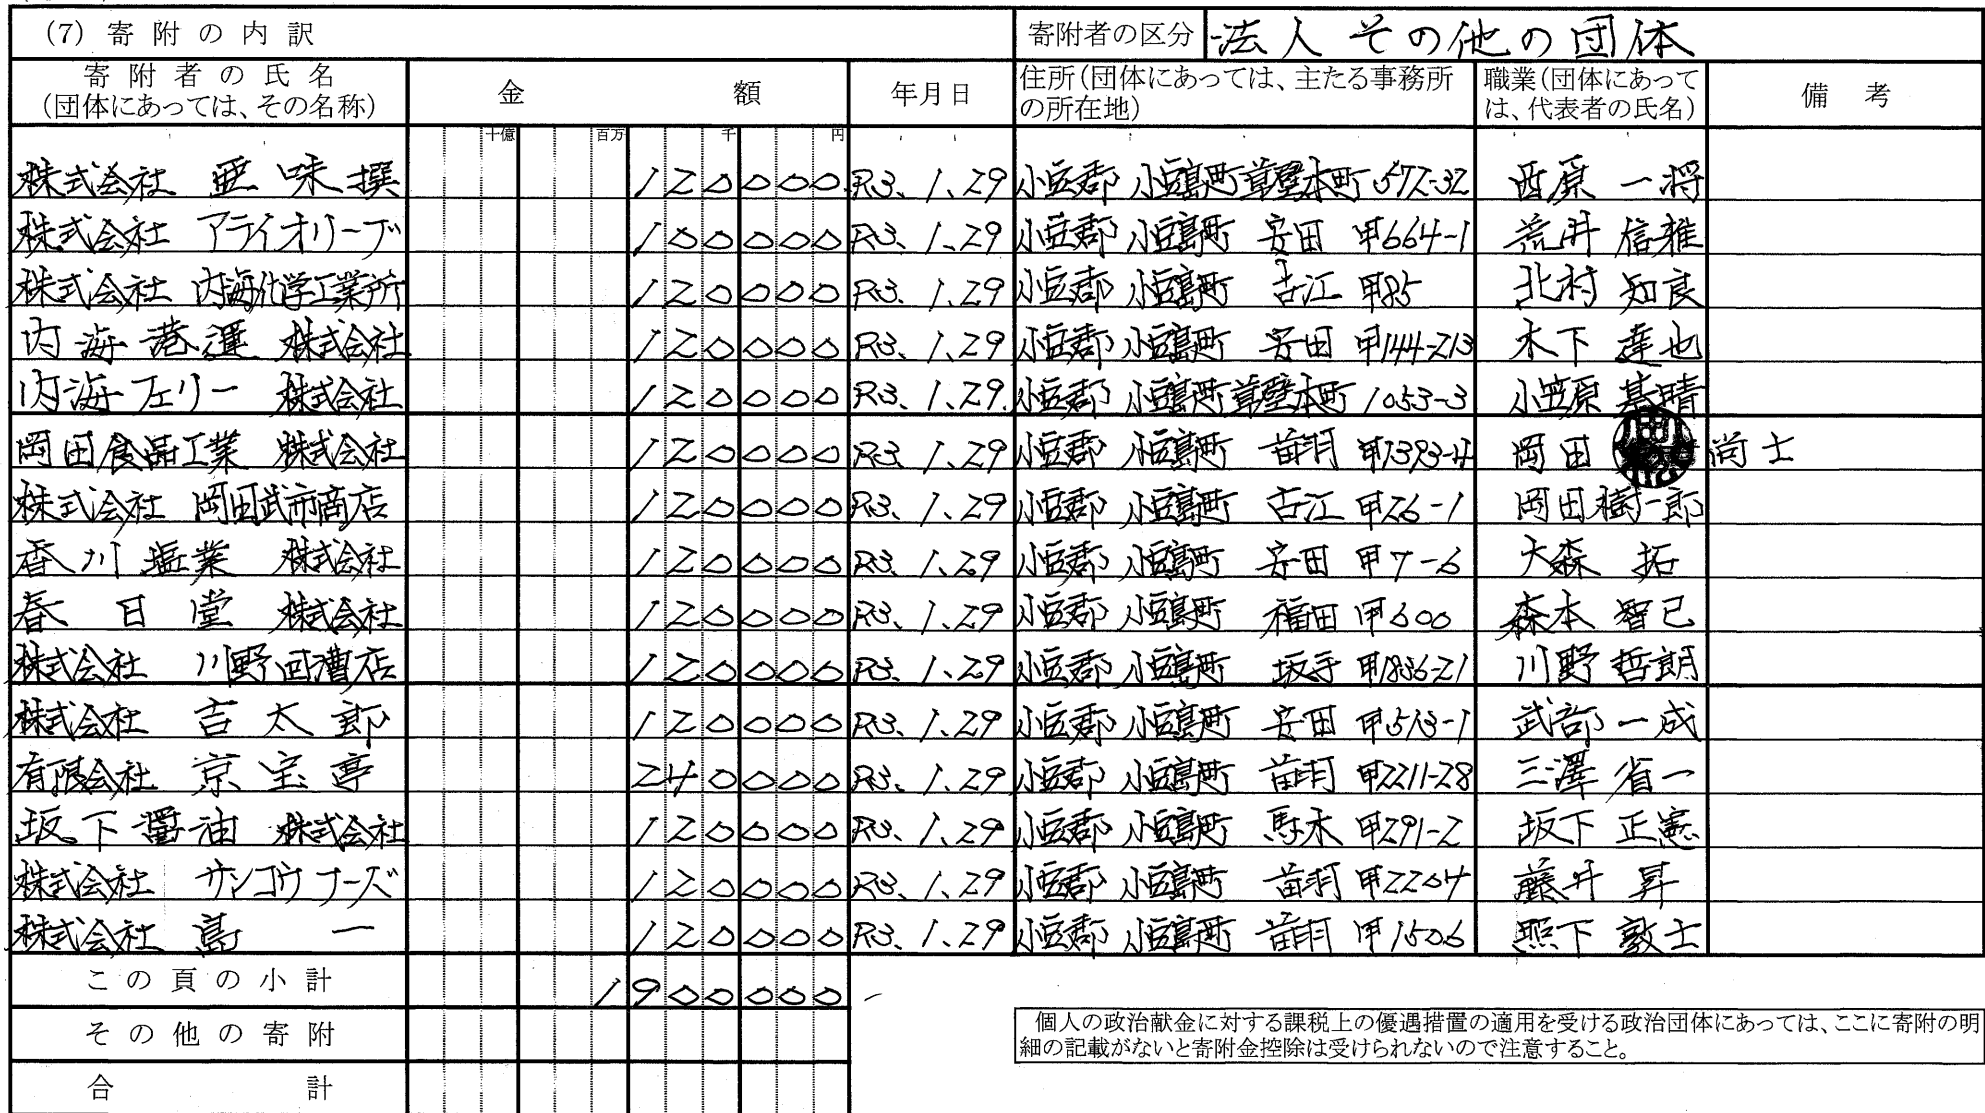 (7) 寄附の内訳 寄附者の区分 法人その他の団体
寄附者の氏名 (団体にあっては、その名称) 金額 年月日 住所(団体にあっては、主たる事務所の所在地) 職業(団体にあっては、代表者の氏名) 備考
十億 百万 千 円
株式会社 亜味撰 120000 R3.1.29 小豆郡 小豆島町草壁本町 572-32 西原 一将
株式会社 アライオリーブ 100000 R3.1.29 小豆郡 小豆島町 安田 甲664-1 荒井 信雅
株式会社 内海化学工業所 120000 R3.1.29 小豆郡 小豆島町 古江 甲85 北村 知良
内海港運 株式会社 120000 R3.1.29 小豆郡 小豆島町 安田 甲144-213 木下 達也
内海フェリー 株式会社 120000 R3.1.29. 小豆郡 小豆島町草壁本町 1053-3 小笠原 基晴
岡田食品工業 株式会社 120000 R3.1.29 小豆郡 小豆島町 苗羽 甲1393-4 岡田 尚士
株式会社 岡田武市商店 120000 R3.1.29 小豆郡 小豆島町 古江 甲26-1 岡田樹一郎
香川塩業 株式会社 120000 R3.1.29 小豆郡 小豆島町 安田 甲7-6 大森 拓
春日堂 株式会社 120000 R3.1.29 小豆郡 小豆島町 福田 甲600 森本 智己
株式会社 川野回漕店 120000 R3.1.29 小豆郡 小豆島町 坂手 甲1836-21 川野 哲朗
株式会社 吉太郎 120000 R3.1.29 小豆郡 小豆島町 安田 甲513-1 武部 一成
有限会社 京宝亭 240000 R3.1.29 小豆郡 小豆島町 苗羽 甲2211-28 三澤 省一
坂下醤油 株式会社 120000 R3.1.29 小豆郡 小豆島町 馬木 甲291-2 坂下 正憲
株式会社 サンコウフーズ 120000 R3.1.29 小豆郡 小豆島町 苗羽 甲2204 藤井 昇
株式会社 島一 120000 R3.1.29 小豆郡 小豆島町 苗羽 甲1506 照下 敦士
この頁の小計 1900000
その他の寄附
合計
個人の政治献金に対する課税上の優遇措置の適用を受ける政治団体にあっては、ここに寄附の明
細の記載がないと寄附金控除は受けられないので注意すること。